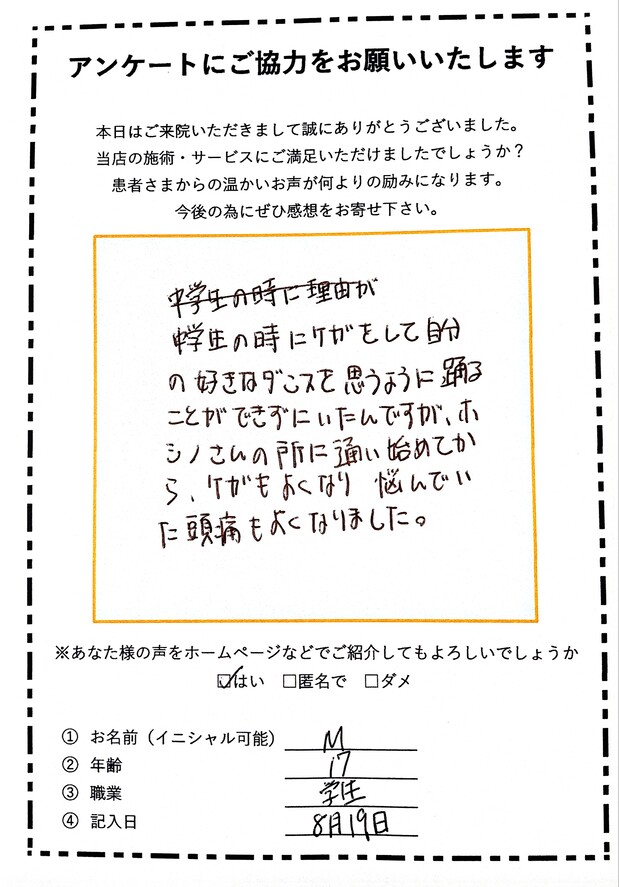 アンケートにご協力をお願いいたします
本日はご来院いただきまして誠にありがとうございました。
当店の施術・サービスにご満足いただけましたでしょうか？
患者さまからの温かいお声が何よりの励みになります。
今後の為にぜひ感想をお寄せ下さい。
中学生の時に理由が
中学生の時にケガをして自分
の好きなダンスを思うように踊る
ことができずにいたんですが、ホ
シノさんの所に通い始めてか
ら、ケガもよくなり 悩んでい
た頭痛もよくなりました。
※あなた様の声をホームページなどでご紹介してもよろしいでしょうか
☑はい □匿名で □ダメ
① お名前（イニシャル可能） M
② 年齢 17
③ 職業 学生
④ 記入日 8月19日